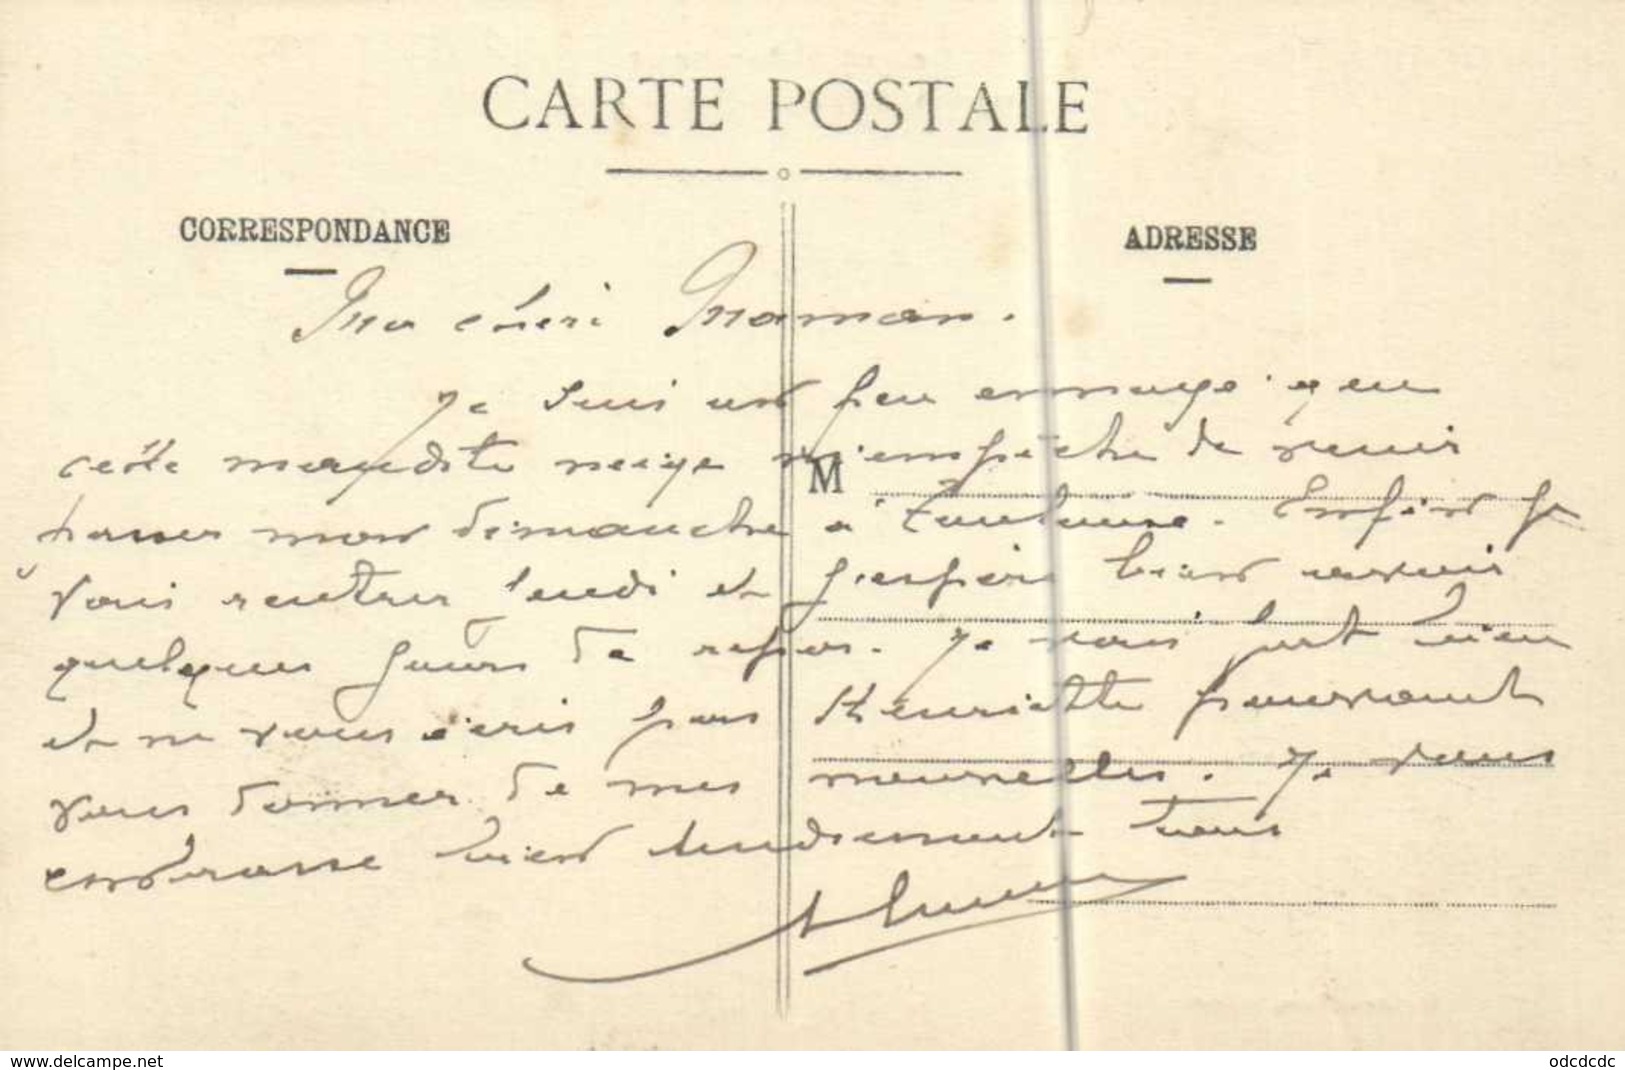 CARTE POSTALE
CORRESPONDANCE
ADRESSE
Ma chéri Maman.
Je suis un peu ennuyé que
cette maudite neige m'empêche de venir
M
passer mon dimanche à Toulouse. Enfin je
vais rentrer lundi et j'espère bien avoir
quelques jours de repos. Je vais fort bien
et ne vous écris pas Henriette pouvant
vous donner de mes nouvelles. Je vous
embrasse bien tendrement tous
www.delcampe.net
odcdcdc